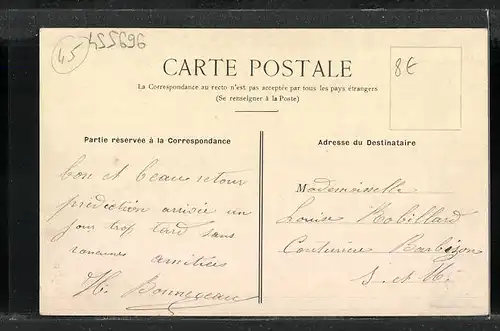 45
455696
8€
CARTE POSTALE
La Correspondance au recto n'est pas acceptée par tous les pays étrangers
(Se renseigner à la Poste)
Partie réservée à la Correspondance
Adresse du Destinataire
bon et beau retour
prédiction arrivée un
jour trop tard sans
rancunes amitiés
H. Bonnegeau
Mademoiselle
Louise Robillard
Couturière Barbizon
S. et M.